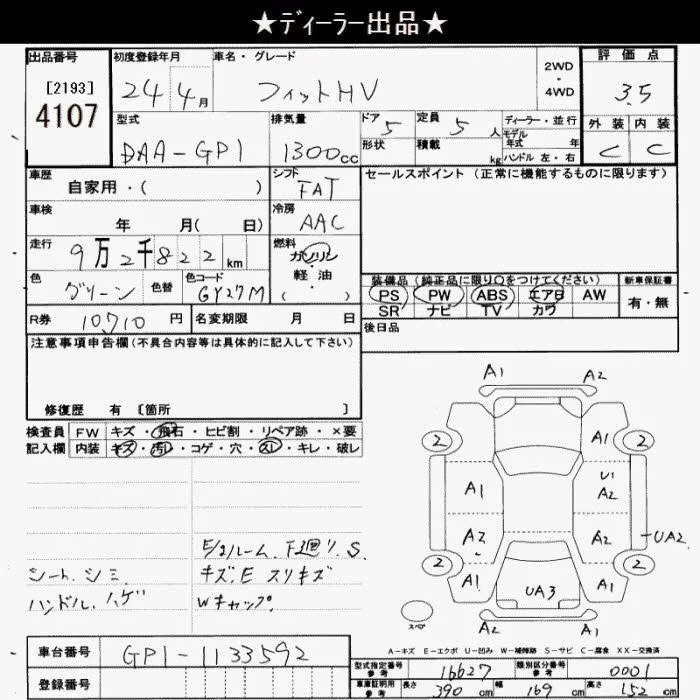 ★ディーラー出品★
出品番号 初度登録年月 車名・グレード 評価点
[2193] 24年4月 フィットHV 2WD・4WD 3.5
4107
型式 排気量 ドア 5 定員 5人 ディーラー・並行 外装 内装
DAA-GP1 1300cc 形状 積載 kg モデル年式 年 ハンドル 左・右 C C
車歴 自家用・( ) シフト FAT セールスポイント(正常に機能するものに限ります)
車検 年 月( 日) 冷房 AAC
走行 9万2千822km 燃料 ガソリン・軽油 ( )
色 グリーン 色替 色コード GY27M
装備品(純正品に限り○をつけてください) 新車保証書
PS PW ABS エアB AW 有・無
SR ナビ TV カワ
R券 10710円 名変期限 月 日 後日品
注意事項申告欄(不具合内容等は具体的に記入して下さい)
修復歴 有 [箇所 ]
検査員 FW キズ・飛石・ヒビ割・リペア跡・×要
記入欄 内装 キズ・汚れ・コゲ・穴・スレ・キレ・破レ
シート、シミ
ハンドル、ハゲ
キズ、E スリキズ
Wキャップ
A1 A2
2 A1 2
A1 U1 A2
A2 A2 UA2
2 A1 UA3 A1 2
A2 A1
スペア
A-キズ E-エクボ U-凹み W-補修跡 S-サビ C-腐食 XX-交換済
車台番号 GP1-1133592
登録番号
型式指定番号 参考 16627 類別区分番号 参考 0001
車庫証明用 参考 長さ 390cm 幅 169cm 高さ 152cm